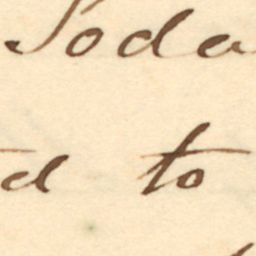 Soda
d to